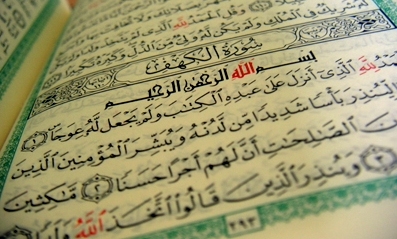 وَلَمْ يَكُن لَّهُۥ وَلِىٌّ مِّنَ ٱلذُّلِّ
سُورَةُ الْكَهْفِ
بِسْمِ ٱللَّهِ ٱلرَّحْمَٰنِ ٱلرَّحِيمِ
لِلَّهِ ٱلَّذِىٓ أَنزَلَ عَلَىٰ عَبْدِهِ ٱلْكِتَٰبَ وَلَمْ يَجْعَل لَّهُۥ عِوَجَا ۜ ١
بَأْسًا شَدِيدًا مِّن لَّدُنْهُ وَيُبَشِّرَ ٱلْمُؤْمِنِينَ ٱلَّذِينَ
ٱلصَّٰلِحَٰتِ أَنَّ لَهُمْ أَجْرًا حَسَنًا ٢ مَّٰكِثِينَ
٣ وَيُنذِرَ ٱلَّذِينَ قَالُوا۟ ٱتَّخَذَ ٱللَّهُ وَلَدًا
٢٩٣